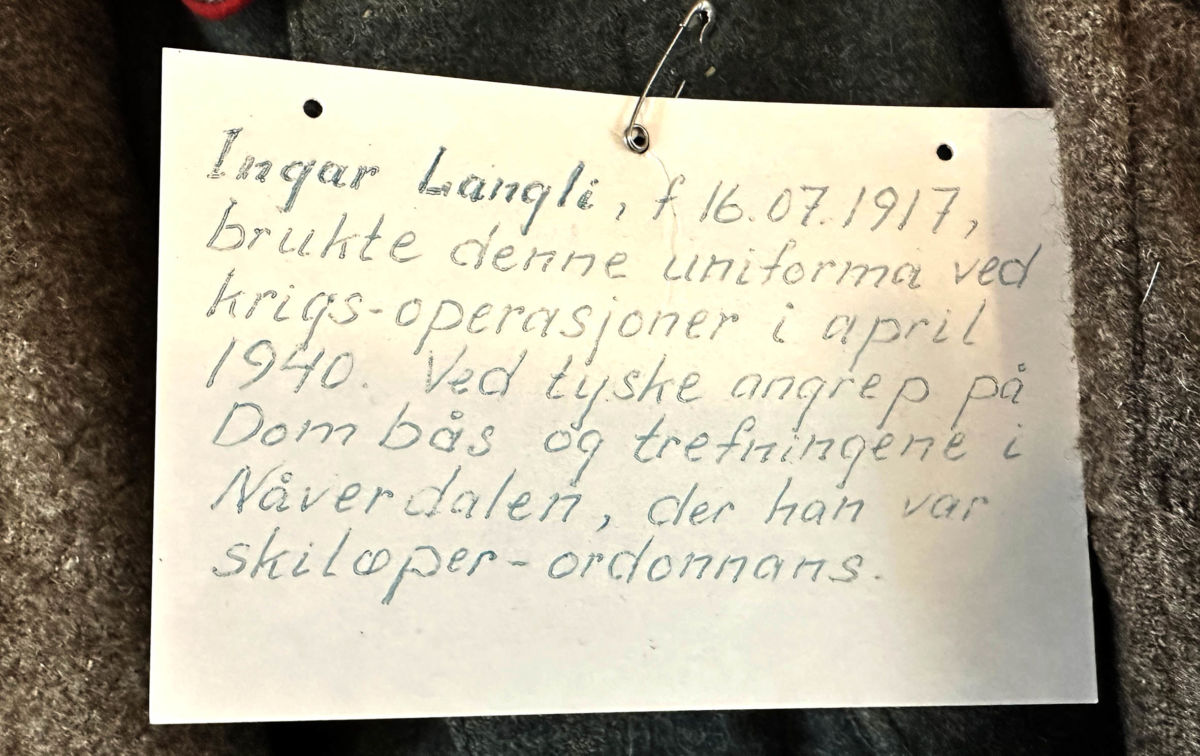 Ingar Langli, f 16.07.1917,
brukte denne uniforma ved
krigs-operasjoner i april
1940. Ved tyske angrep på
Dombås og trefningene i
Nåverdalen, der han var
skiløper-ordonnans.